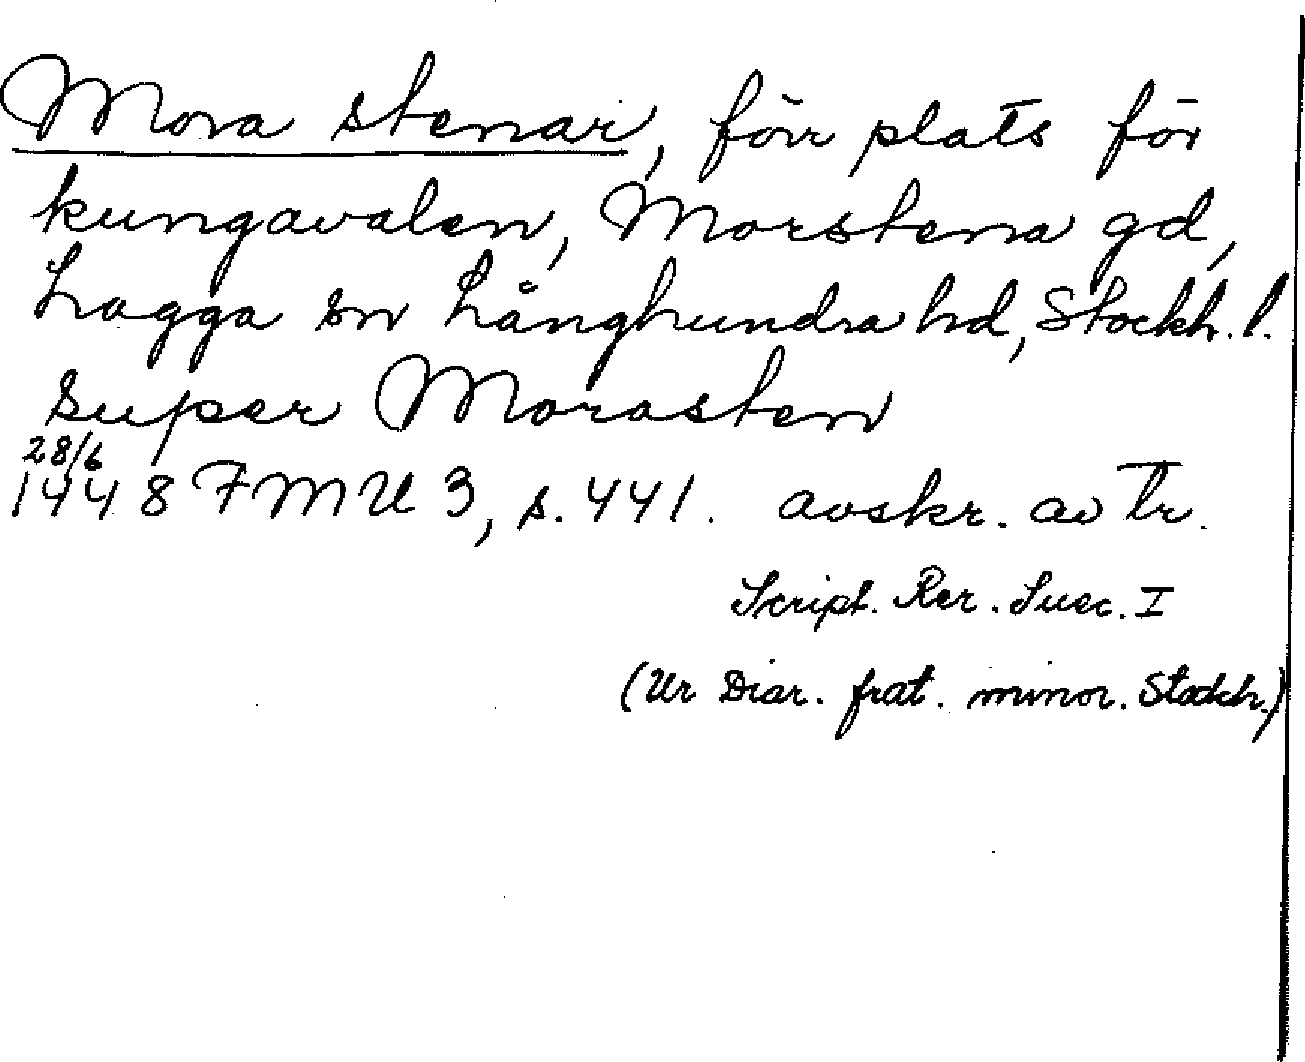 Mora stenar, förr plats för
kungavalen, Morstena gd,
Lagga sn Långhundra hd, Stockh. l.
super Morasten
28/6
1448 FMU 3, s. 441. avskr. av tr.
Script. Rer. Suec. I
(Ur Diar. frat. minor. Stockh.)